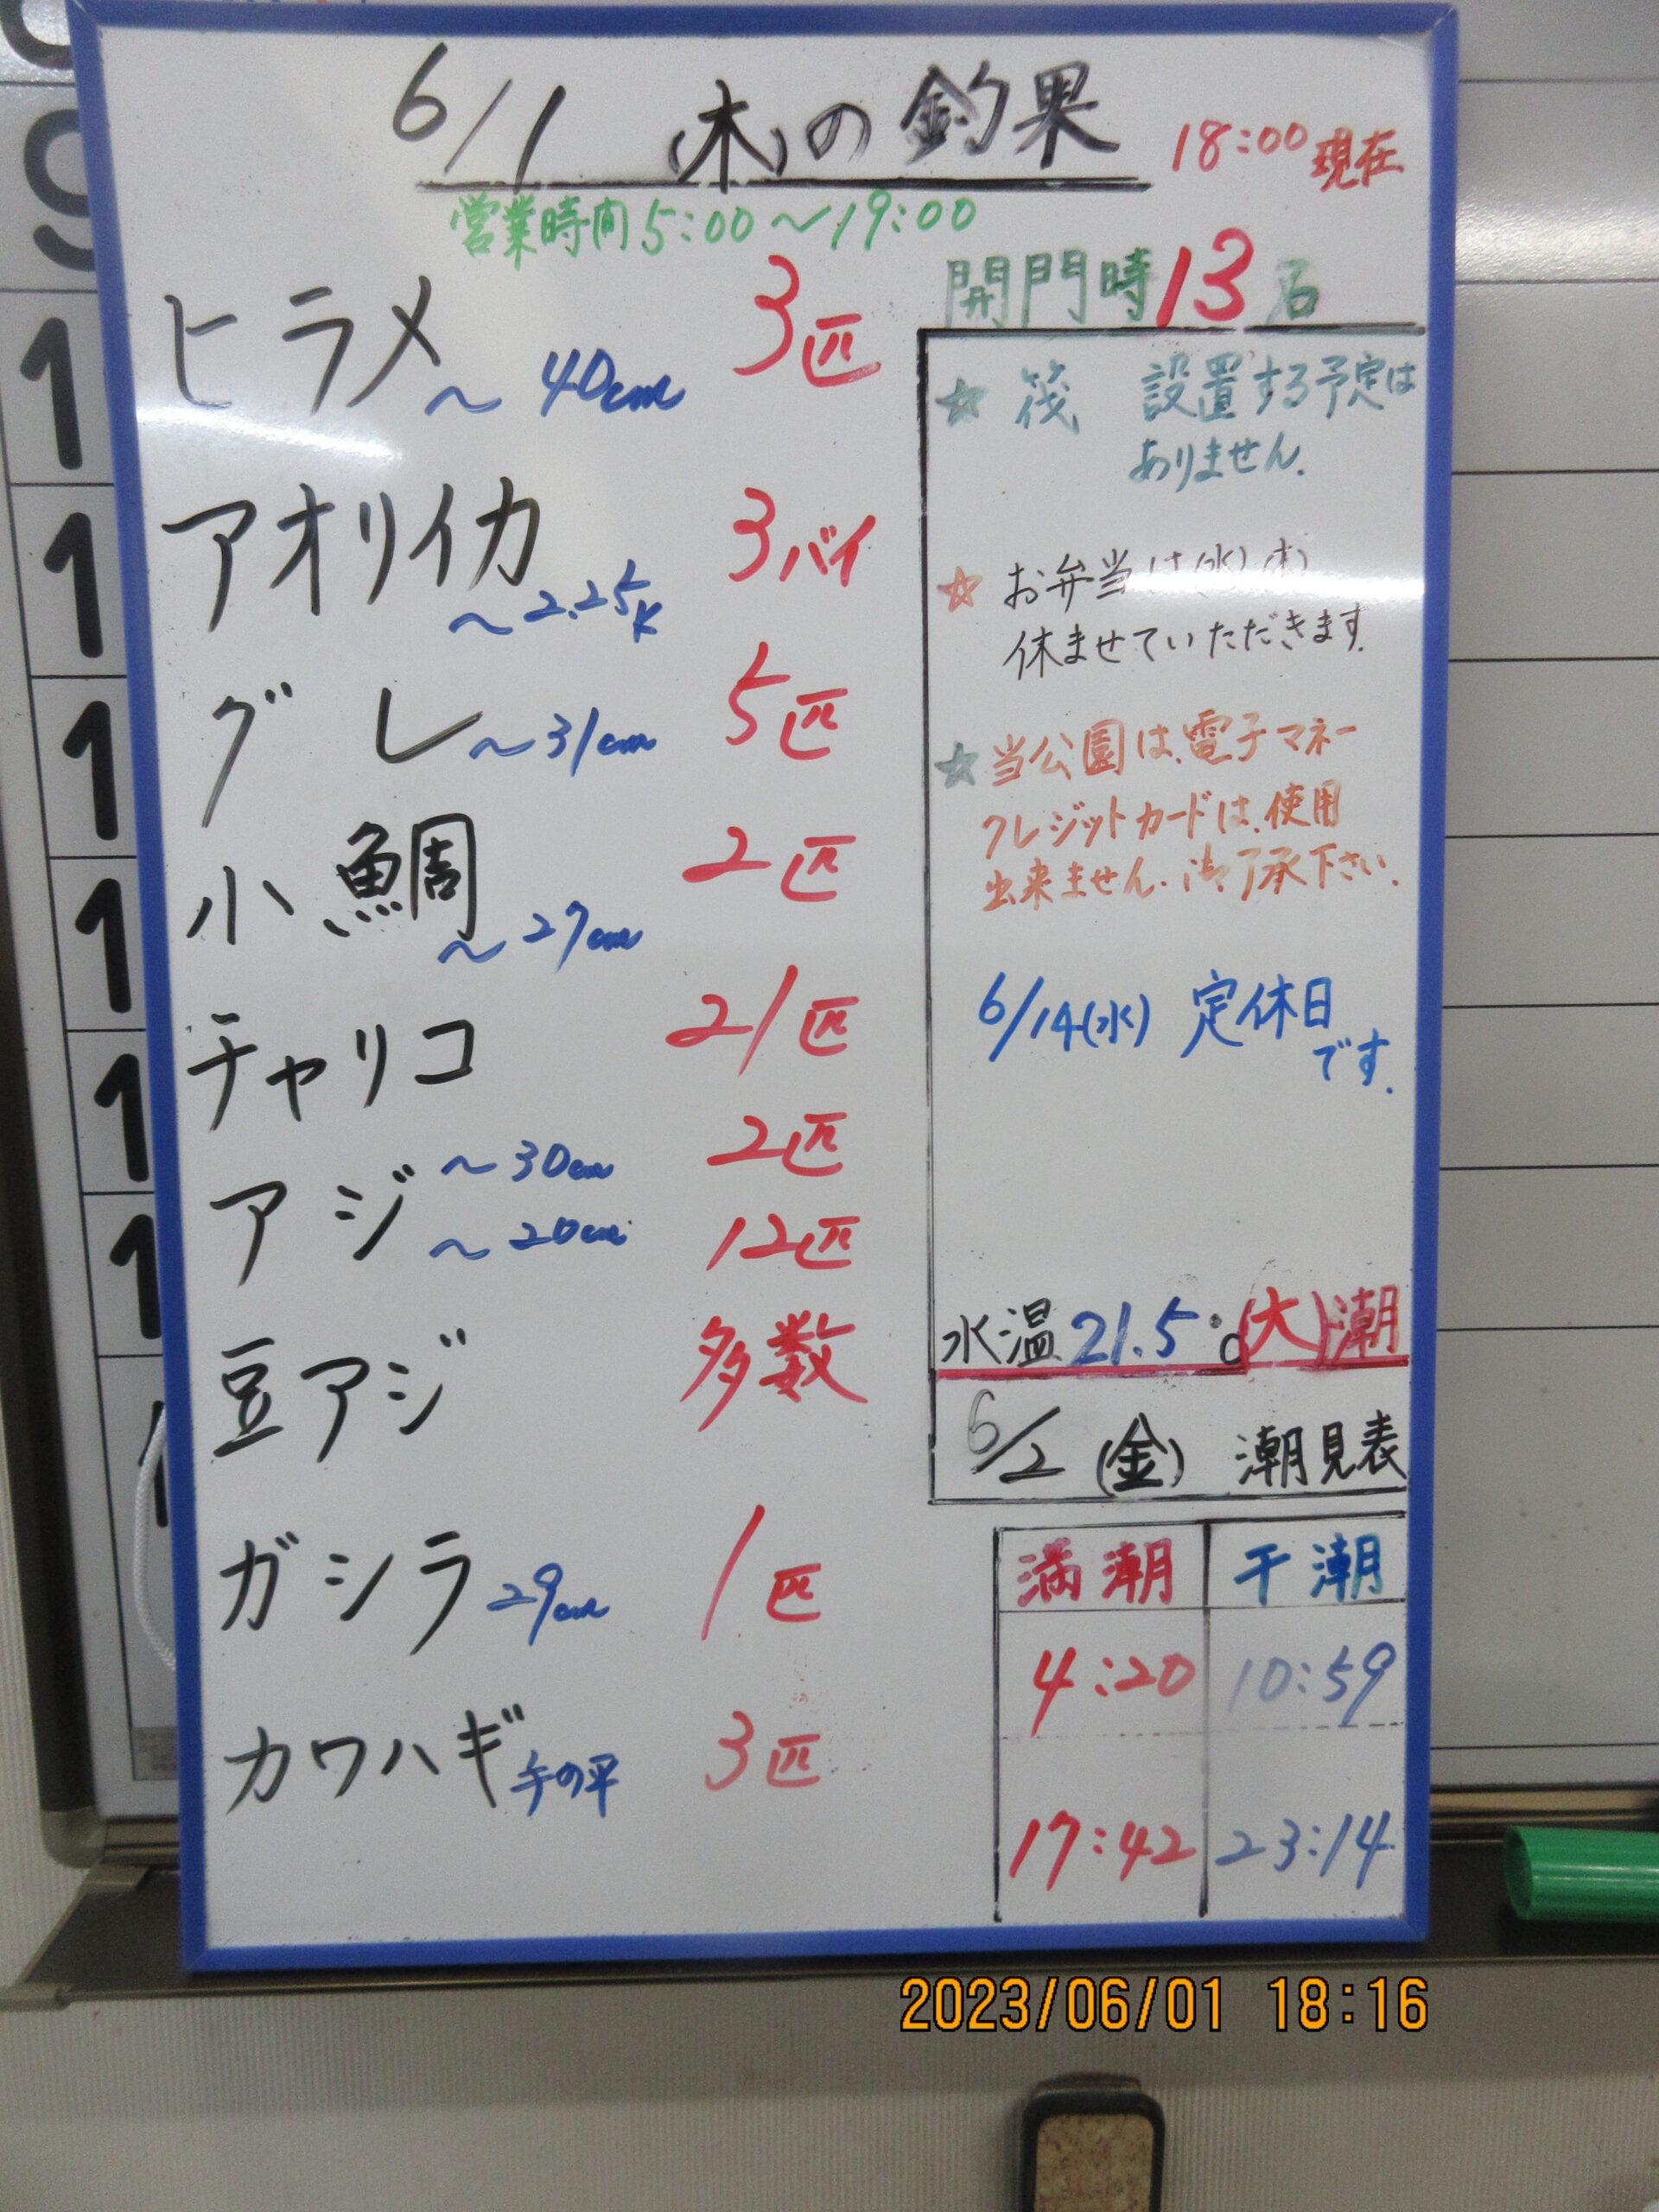 6/1 (木)の釣果 18:00現在
営業時間5:00〜19:00
開門時13名
ヒラメ〜40cm 3匹
アオリイカ〜2.25K 3バイ
グレ〜31cm 5匹
小鯛〜27cm 2匹
チャリコ 21匹
アジ〜30cm 2匹
〜20cm 12匹
豆アジ 多数
ガシラ29cm 1匹
カワハギ手の平 3匹
☆筏 設置する予定は
ありません.
☆お弁当は(水)(木)
休ませていただきます.
☆当公園は、電子マネー
クレジットカードは、使用
出来ません.御了承下さい.
6/14(水) 定休日
です.
水温21.5℃(大)潮
6/2(金) 潮見表
満潮 干潮
4:20 10:59
17:42 23:14
2023/06/01 18:16
9
1
1
1
1
1
1